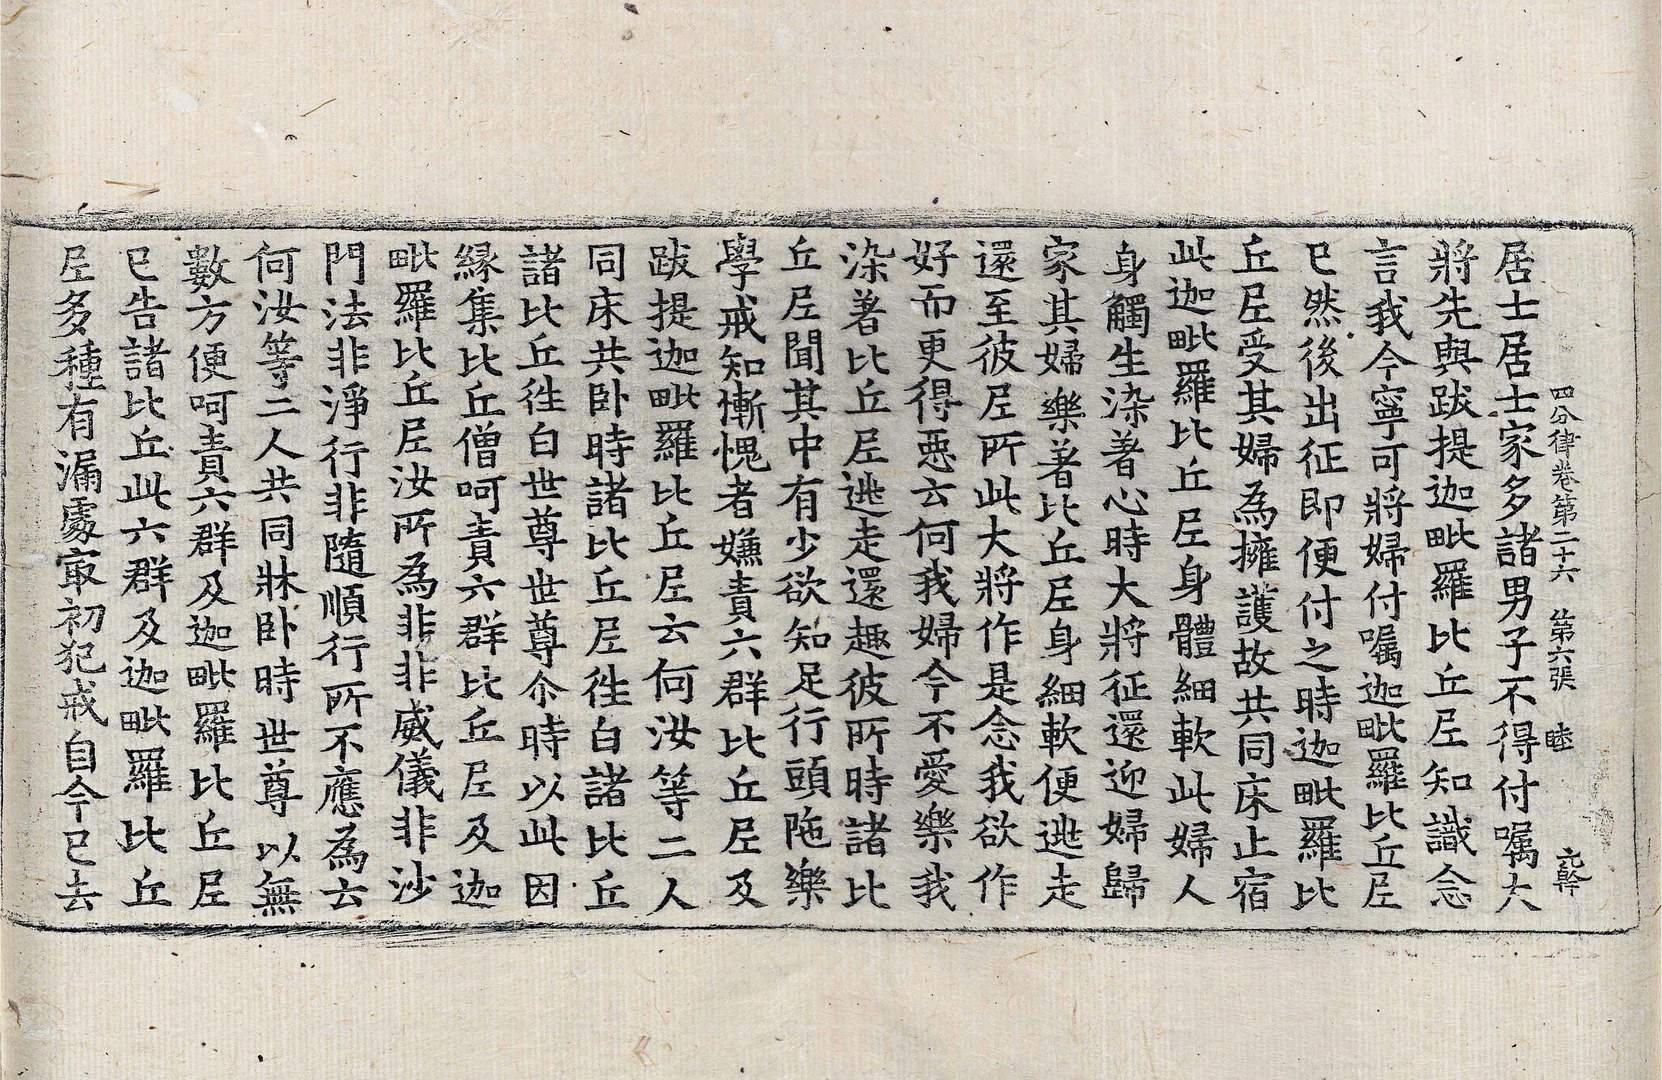 四分律卷第二十六 第六張 睦 元幹
居士居士家多諸男子不得付囑大
將先與跋提迦毗羅比丘尼知識念
言我今寧可將婦付囑迦毗羅比丘尼
已然後出征即便付之時迦毗羅比
丘尼受其婦為擁護故共同床止宿
此迦毗羅比丘尼身體細軟此婦人
身觸生染著心時大將征還迎婦歸
家其婦樂著比丘尼身細軟便逃走
還至彼尼所此大將作是念我欲作
好而更得惡云何我婦今不愛樂我
染著比丘尼逃走還趣彼所時諸比
丘尼聞其中有少欲知足行頭陁樂
學戒知慚愧者嫌責六群比丘尼及
跋提迦毗羅比丘尼云何汝等二人
同床共卧時諸比丘尼徃白諸比丘
諸比丘徃白世尊世尊尒時以此因
緣集比丘僧呵責六群比丘尼及迦
毗羅比丘尼汝所為非非威儀非沙
門法非淨行非隨順行所不應為云
何汝等二人共同牀卧時世尊以無
數方便呵責六群及迦毗羅比丘尼
已告諸比丘此六群及迦毗羅比丘
尼多種有漏處㝡初犯戒自今已去